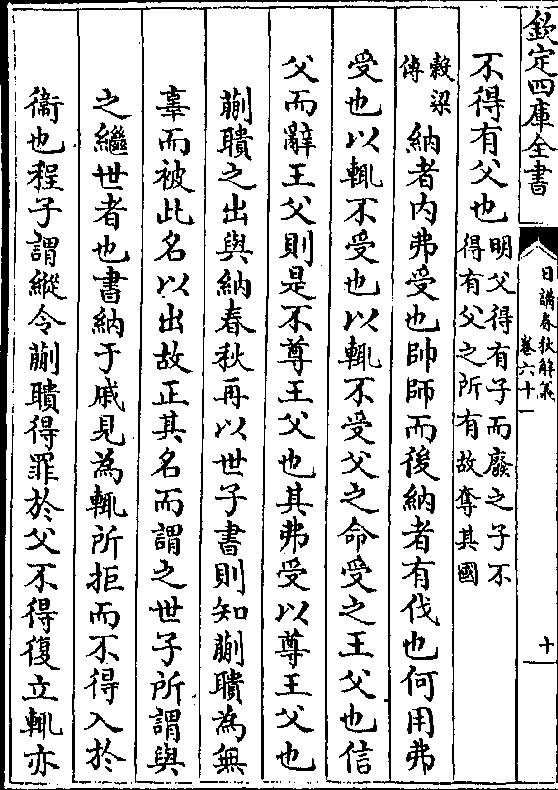 欽定四庫全書
日講春秋解義
卷六十一
十
不得有父也
明父得有子而廢之子不
得有父之所有故奪其國
穀梁
傳
納者内弗受也帥師而後納者有伐也何用弗
受也以輒不受也以輒不受父之命受之王父也信
父而辭王父則是不尊王父也其弗受以尊王父也
蒯聵之出與納春秋再以世子書則知蒯聵為無
辠而被此名以出故正其名而謂之世子所謂與
之繼世者也書納于戚見為輒所拒而不得入於
衞也程子謂縱令蒯聵得罪於父不得復立輒亦